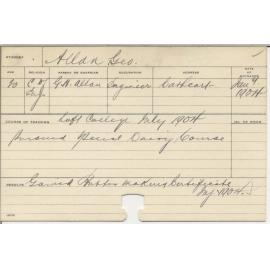 STUDENT Allan Geo.
AGE RELIGION PARENT OR GUARDIAN OCCUPATION ADDRESS DATE OF ADMISSION
20 C of Eng. G. H. Allan Engineer Cathcart Jan 9 1904
COURSE OF TRAINING Left College July 1904
Pursued Usual Dairy Course
RESULTS Gained Butter Making Certificate
July 1904.
NOTE